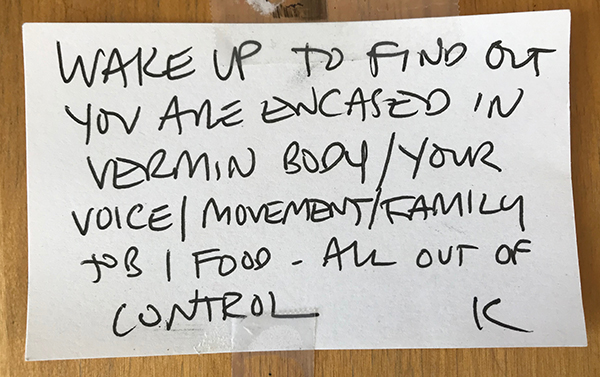 WAKE UP TO FIND OUT
YOU ARE ENCASED IN
VERMIN BODY/YOUR
VOICE/MOVEMENT/FAMILY
JOB/FOOD - ALL OUT OF
CONTROL K